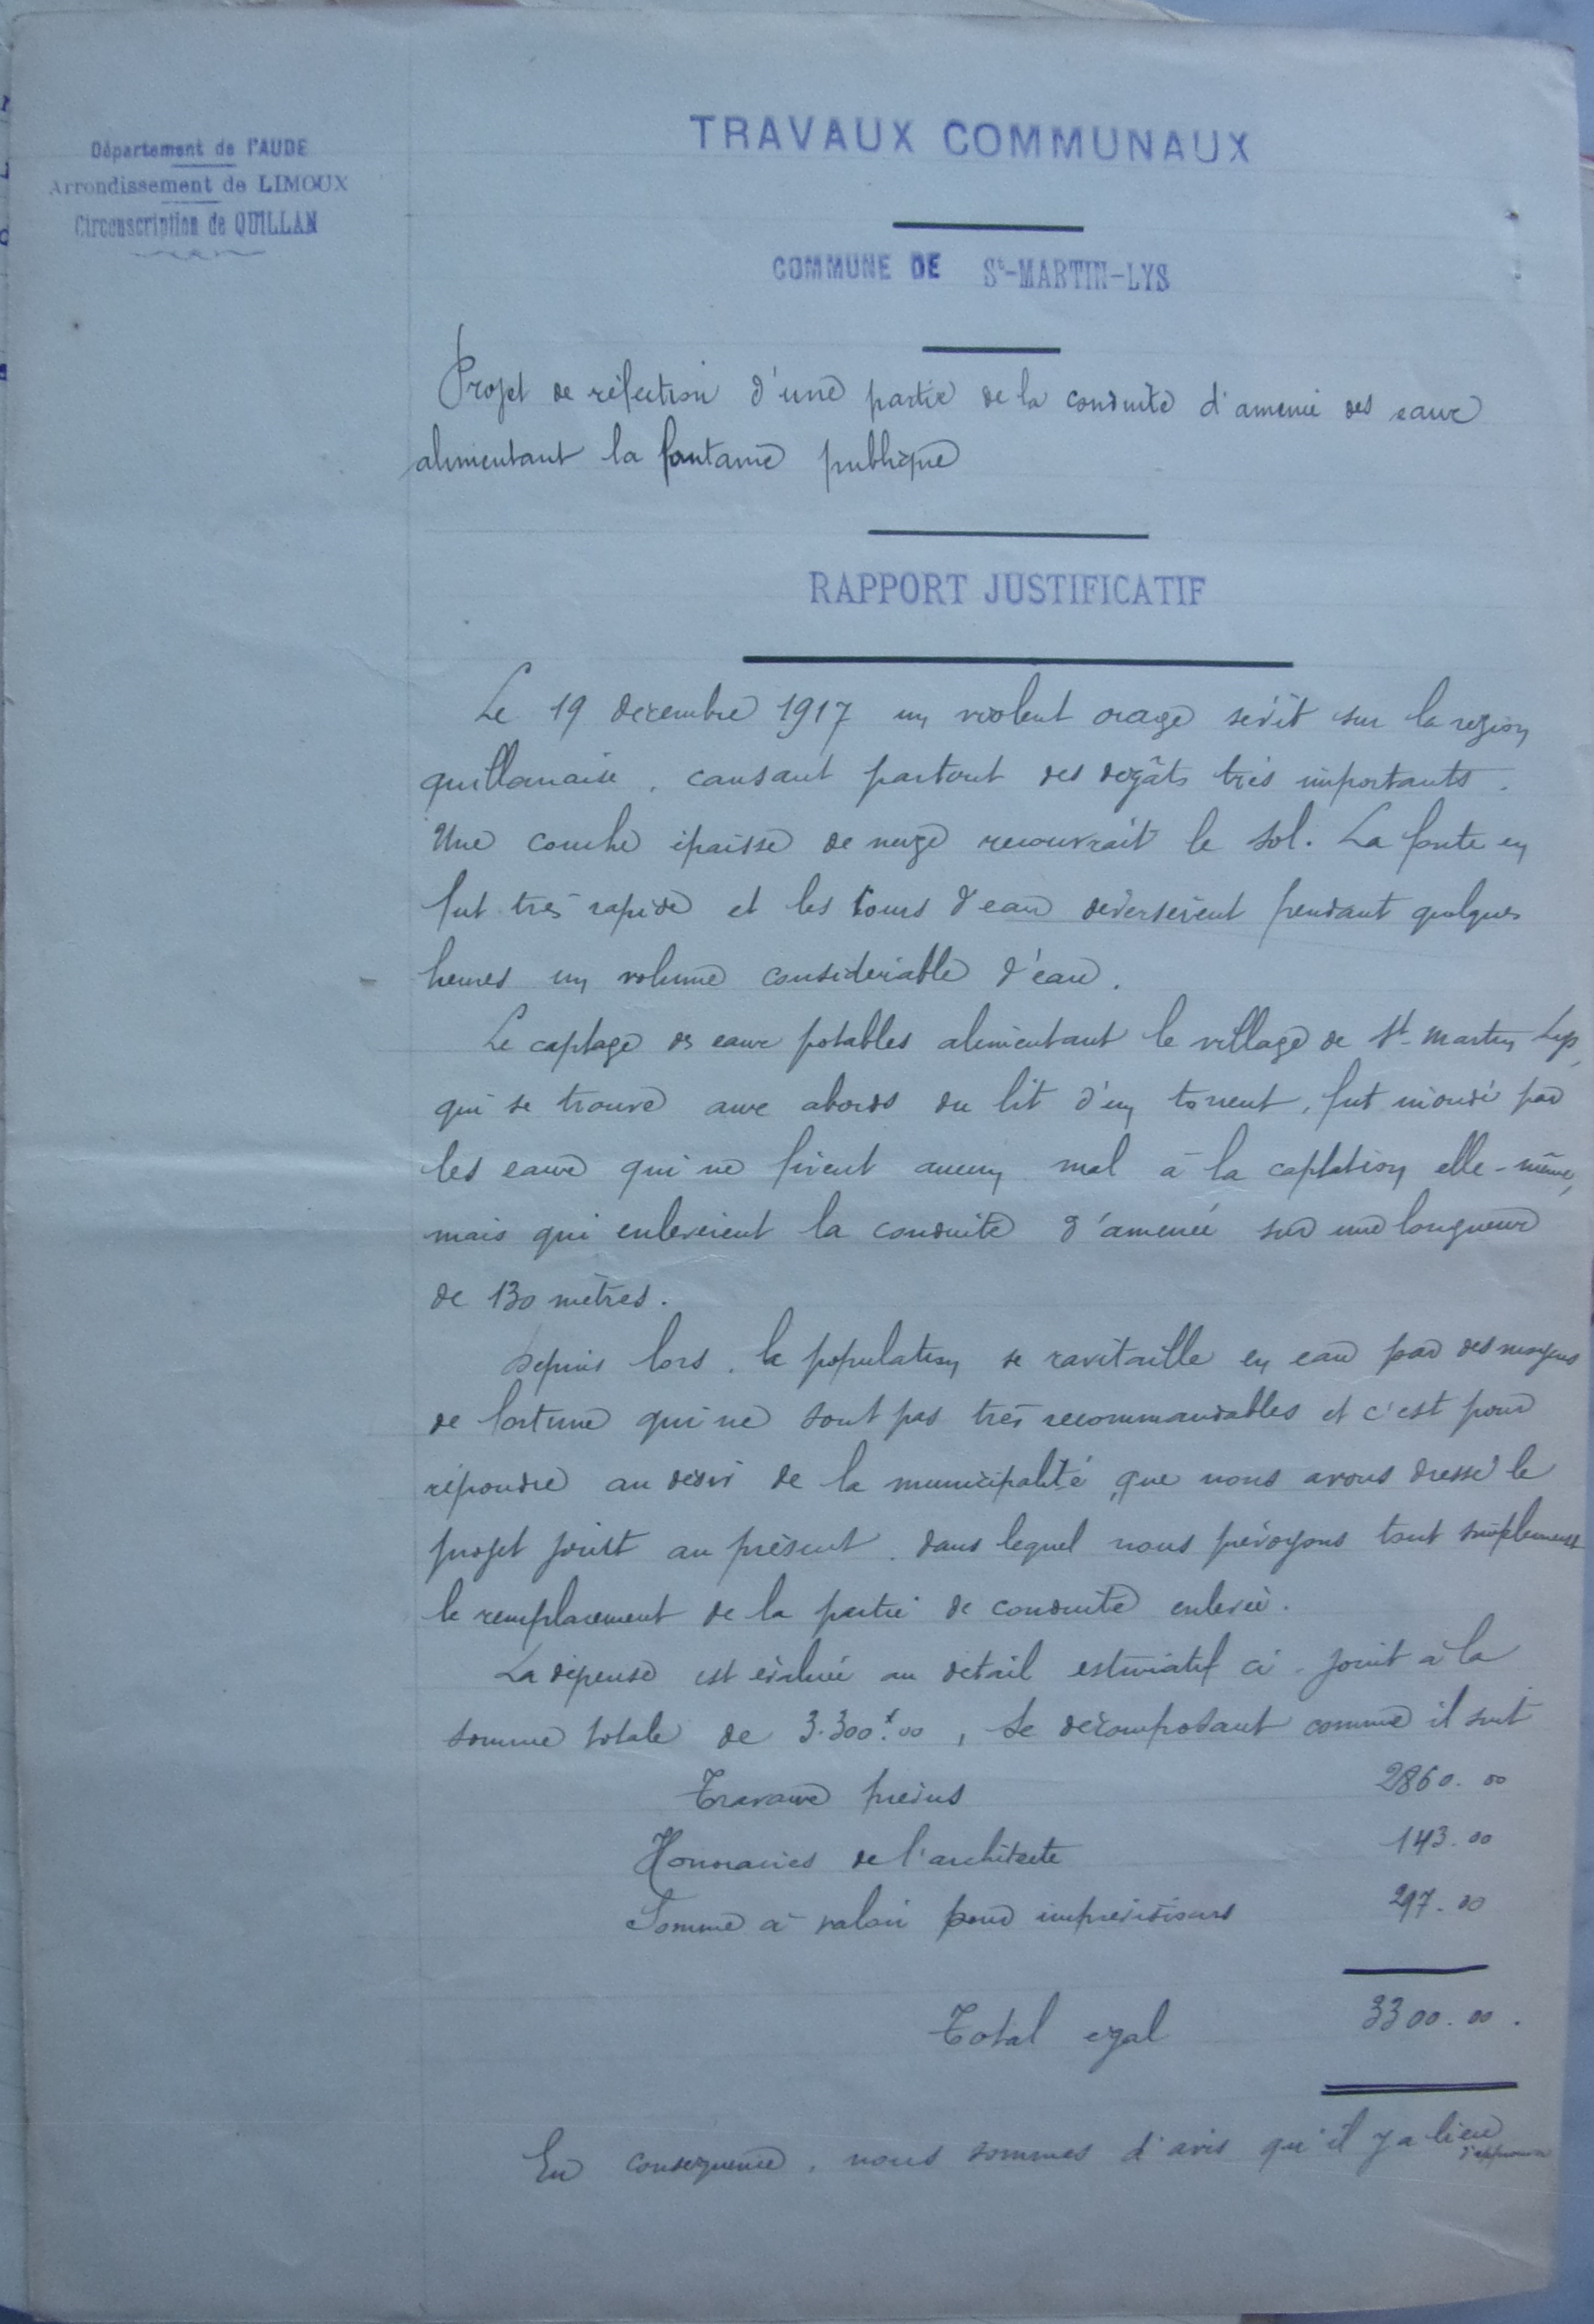 Département de l'AUDE
Arrondissement de LIMOUX
Circonscription de QUILLAN
TRAVAUX COMMUNAUX
COMMUNE DE St-MARTIN-LYS
Projet de réfection d'une partie de la conduite d'amenée des eaux
alimentant la fontaine publique
RAPPORT JUSTIFICATIF
Le 19 décembre 1917 un violent orage sévit sur la région
quillanaise, causant partout des dégâts très importants.
Une couche épaisse de neige recouvrait le sol. La fonte en
fut très rapide et les cours d'eau déversèrent pendant quelques
heures un volume considérable d'eau.
Le captage des eaux potables alimentant le village de St-Martin Lys,
qui se trouve aux abords du lit d'un torrent, fut inondé par
les eaux qui ne firent aucun mal à la captation elle-même,
mais qui enlevèrent la conduite d'amenée sur une longueur
de 130 mètres.
Depuis lors, la population se ravitaille en eau par des moyens
de fortune qui ne sont pas très recommandables et c'est pour
répondre au désir de la municipalité que nous avons dressé le
projet joint au présent, dans lequel nous prévoyons tout simplement
le remplacement de la partie de conduite enlevée.
La dépense est évaluée au détail estimatif ci-joint à la
somme totale de 3.300f.00, se décomposant comme il suit
Travaux prévus 2860.00
Honoraires de l'architecte 143.00
Somme à valoir pour imprévisions 297.00
Total égal 3300.00.
En conséquence, nous sommes d'avis qu'il y a lieu
d'approuver